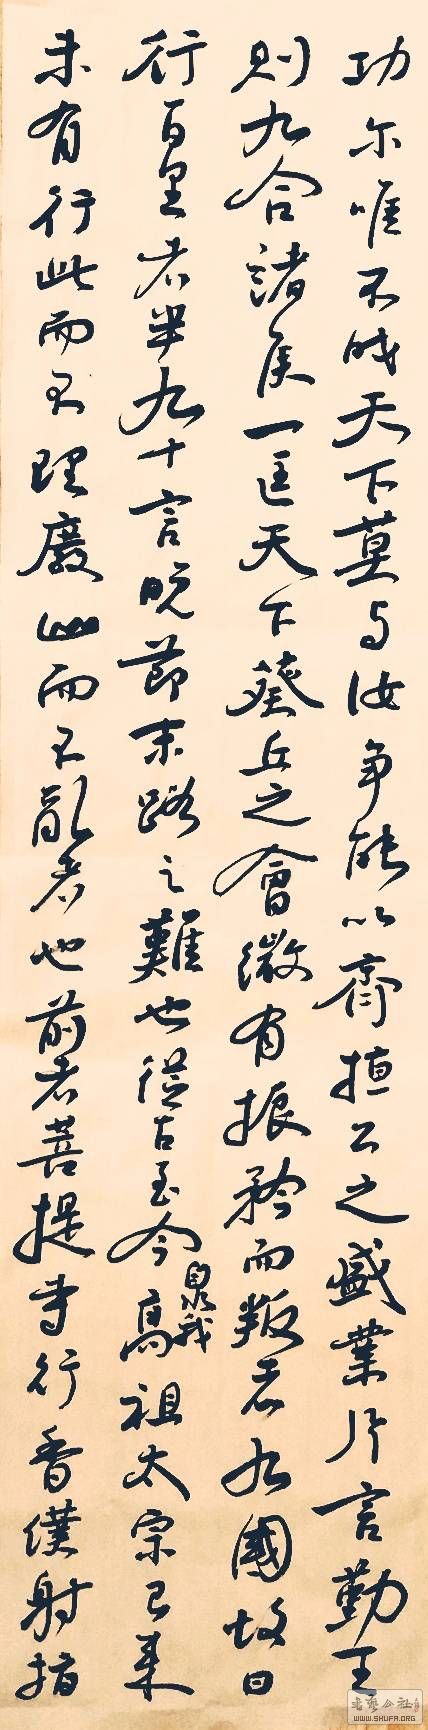 功尔唯不伐天下莫与汝争能以齐桓公之盛業片言勤王
則九合諸侯一匡天下葵丘之會微有振矜而叛者九國故曰
行百里者半九十言晚節末路之難也從古至今泉我高祖太宗已来
未有行此而不理廢此而不亂者也前者菩提寺行香僕射指
书艺公社
WWW.SHUFA.ORG